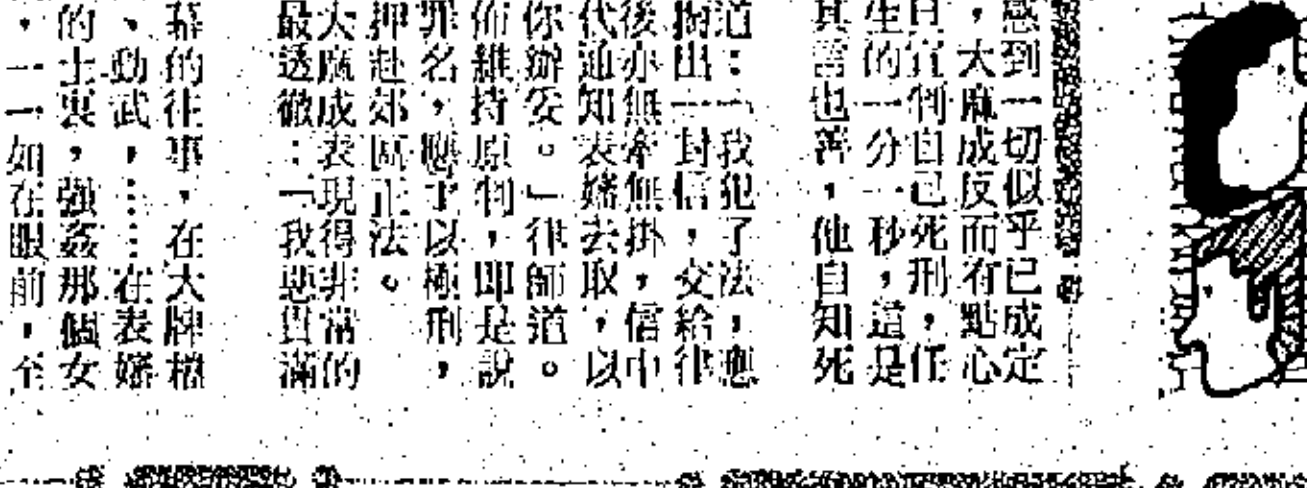 感到一切似乎已成定
,大麻成反而有點心
且宣判自己死刑,任
生的一分一秒,這是
其言也善,他自知死
道:「我犯了法,應
掏出一封信,交給律
後亦無牽無掛,信中
代通知表嬸去取,以
你辦妥。」律師道。
佈維持原判,即是說
罪名,應予以極刑,
押赴郊區正法。
大麻成表現得非常的
最透徹:「我惡貫滿
幕的往事,在大牌檔
、動武,……在表嬸
的士裏,強姦那個女
,一一如在眼前,至